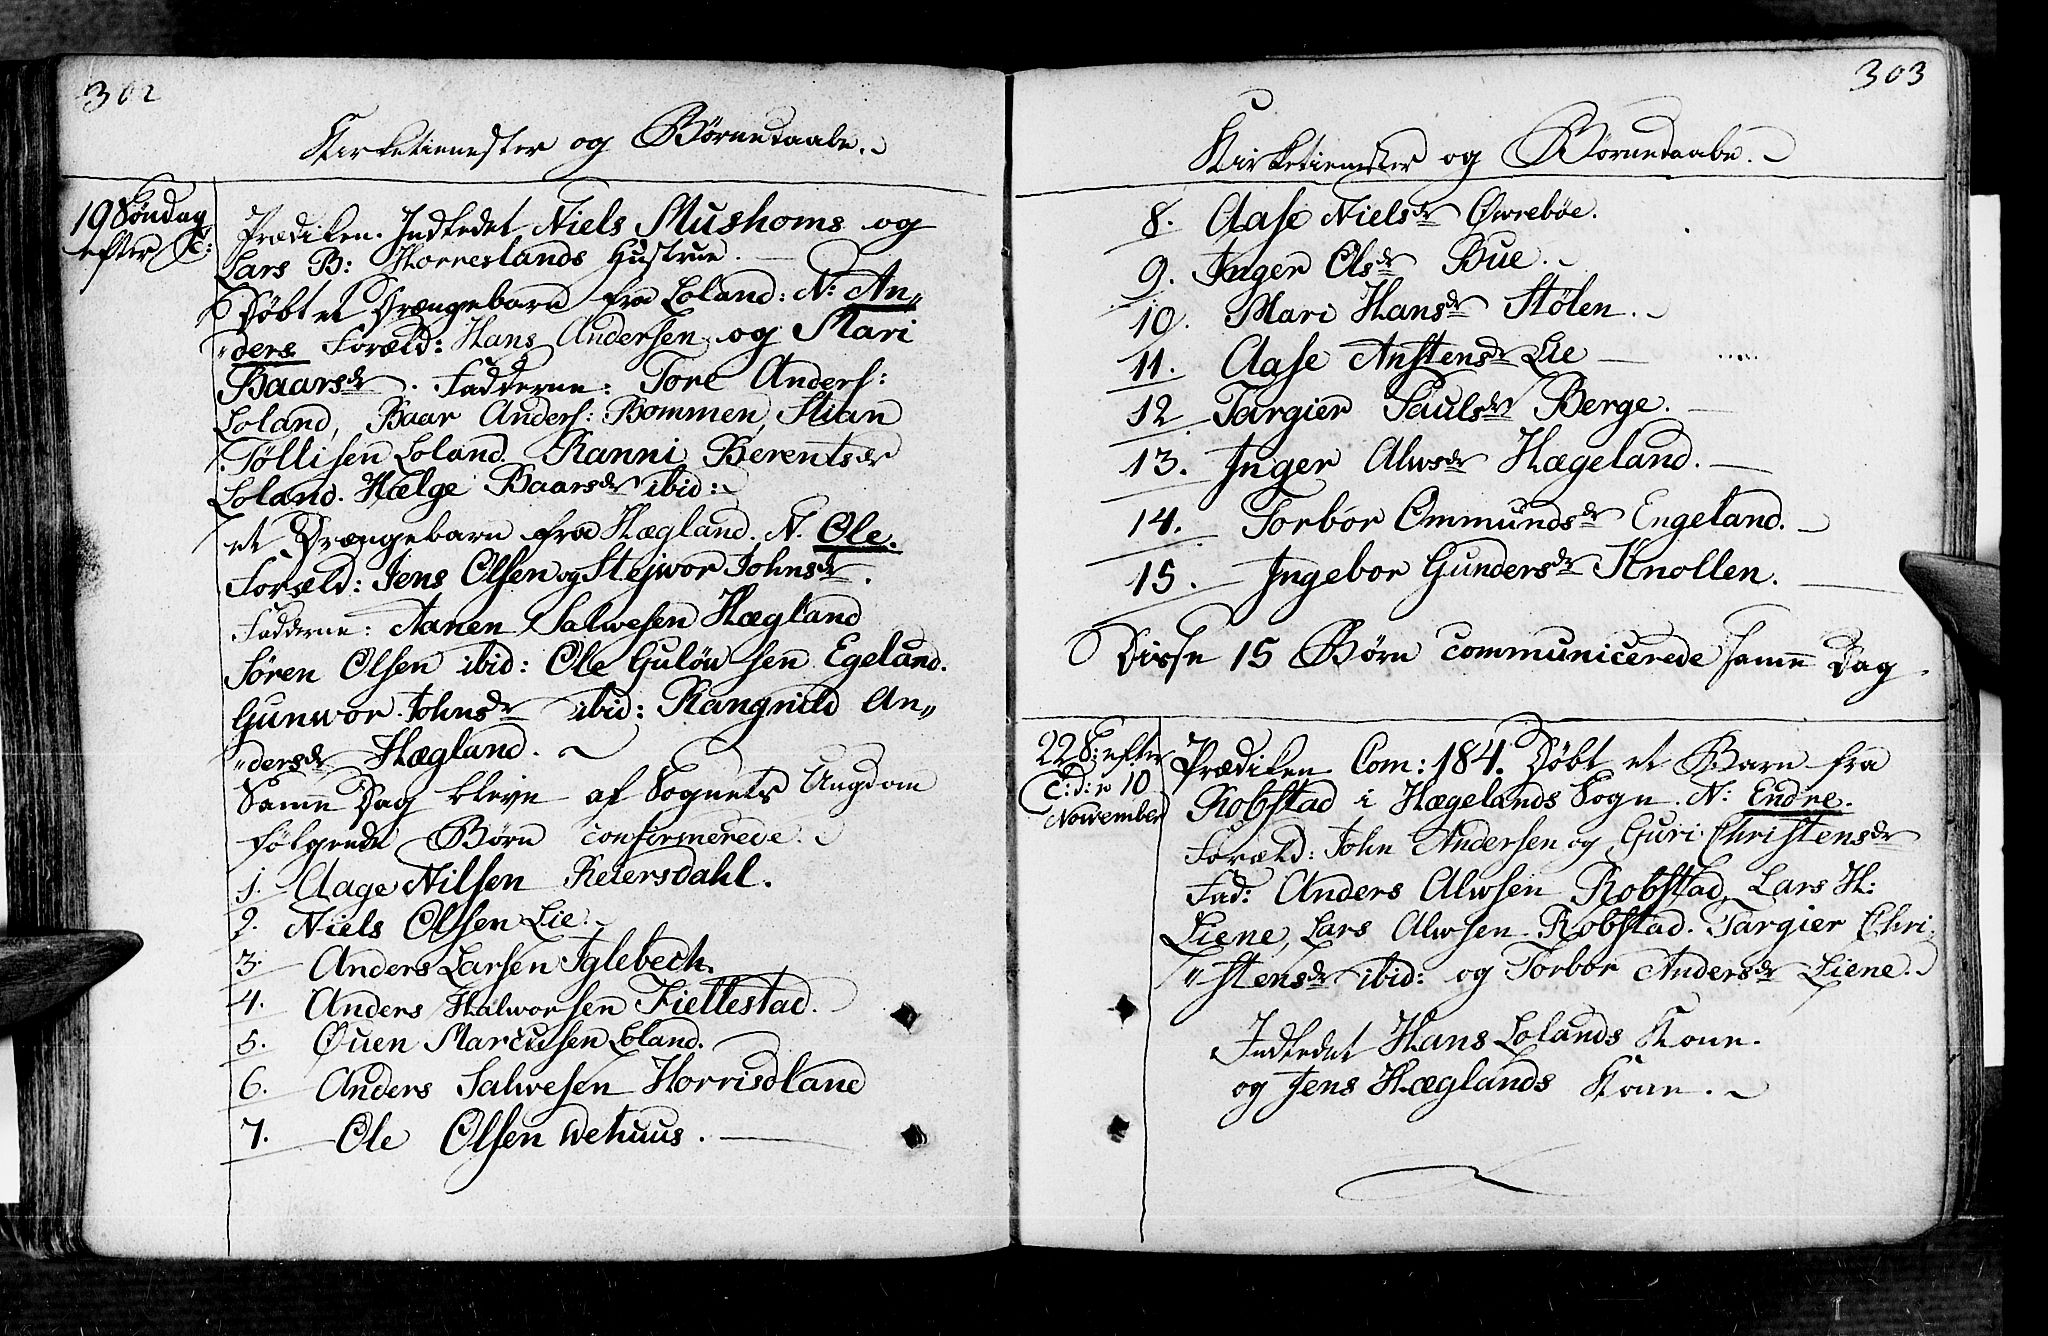 302
Kirketienester og Børnedaabe.
19 Søndag
efter
Prædiken. Indledet Niels Mushoms og
Lars B: Horreslands Hustrue.
Døbt et Drængebarn fra Loland: N: An„
„ders Foræld: Hans Andersen og Mari
Baarsdr. Fadderne: Tore Anders:
Loland, Baar Anders: Bommen, Stian
Tøllisen Loland. Ranni Berentsdr
Loland. Hælge Baarsdr ibid:
et Drængebarn fra Hægland. N. Ole.
Foræld: Jens Olsen og Stejwor Johnsdr.
Fadderne: Aanen Salwesen Hægland
Søren Olsen ibid: Ole Guløusen Egeland.
Gunwor Johnsdr ibid: Rangnild An„
„dersdr Hægland.
Samme Dag bleve af Sognets Ungdom
følgende Børn confirmerede.
1. Aage Nilsen Reiersdahl.
2. Niels Olsen Lie.
3. Anders Larsen Iglebech.
4. Anders Halworsen Fiellestad.
5. Øuen Marcusen Loland.
6. Anders Salwesen Horrisdland
7. Ole Olsen Wehuus.
303
Kirketienester og Børnedaabe.
8. Aase Nielsdr Øwrebøe.
9. Inger Olsdr Bue.
10. Mari Hansdr Stølen.
11. Aase Anstensdr Lie
12 Targier Paulsdr Berge.
13. Inger Alwsdr Hægeland.
14. Torbor Ommundsdr Engeland.
15. Ingebor Gundersdr Knollen.
Disse 15 Børn communicerede samme Dag
22 S: efter
T: d: 10
November
Prædiken Com: 184. Døbt et Barn fra
Robstad i Hægelands Sogn. N: Endre.
Foræld: John Andersen og Guri Christensdr
Fad: Anders Alwsen Robstad, Lars H:
Liene, Lars Alwsen Robstad. Targier Chri„
„stensdr ibid: og Torbor Andersdr Liene.
Indledet Hans Lolands Kone.
og Jens Hæglands Kone.